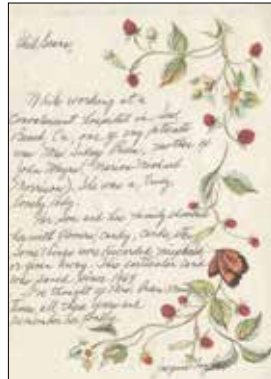 While working at a
Convalescent Hospital in
Beach, Ca, one of my patients
was Mrs. Sidney Preen, mother of
John Wayne, (Marion Michael
Morrison). She was a, truly,
lovely lady.
Her son and his family showered
her with flowers, candy, cards, etc.
Some things were discarded, misplaced
or given away. This particular card
was saved
I've thought of Mrs. Preen many
times all these years and
remember her fondly.